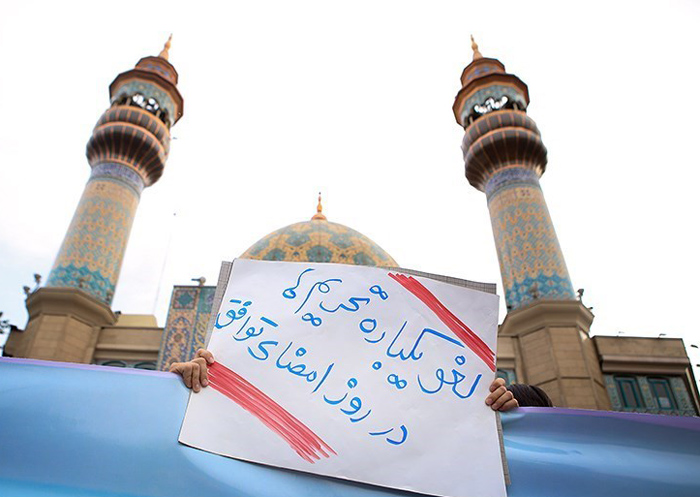 لغو یکباره تحریم‌ها
در روز امضای توافق